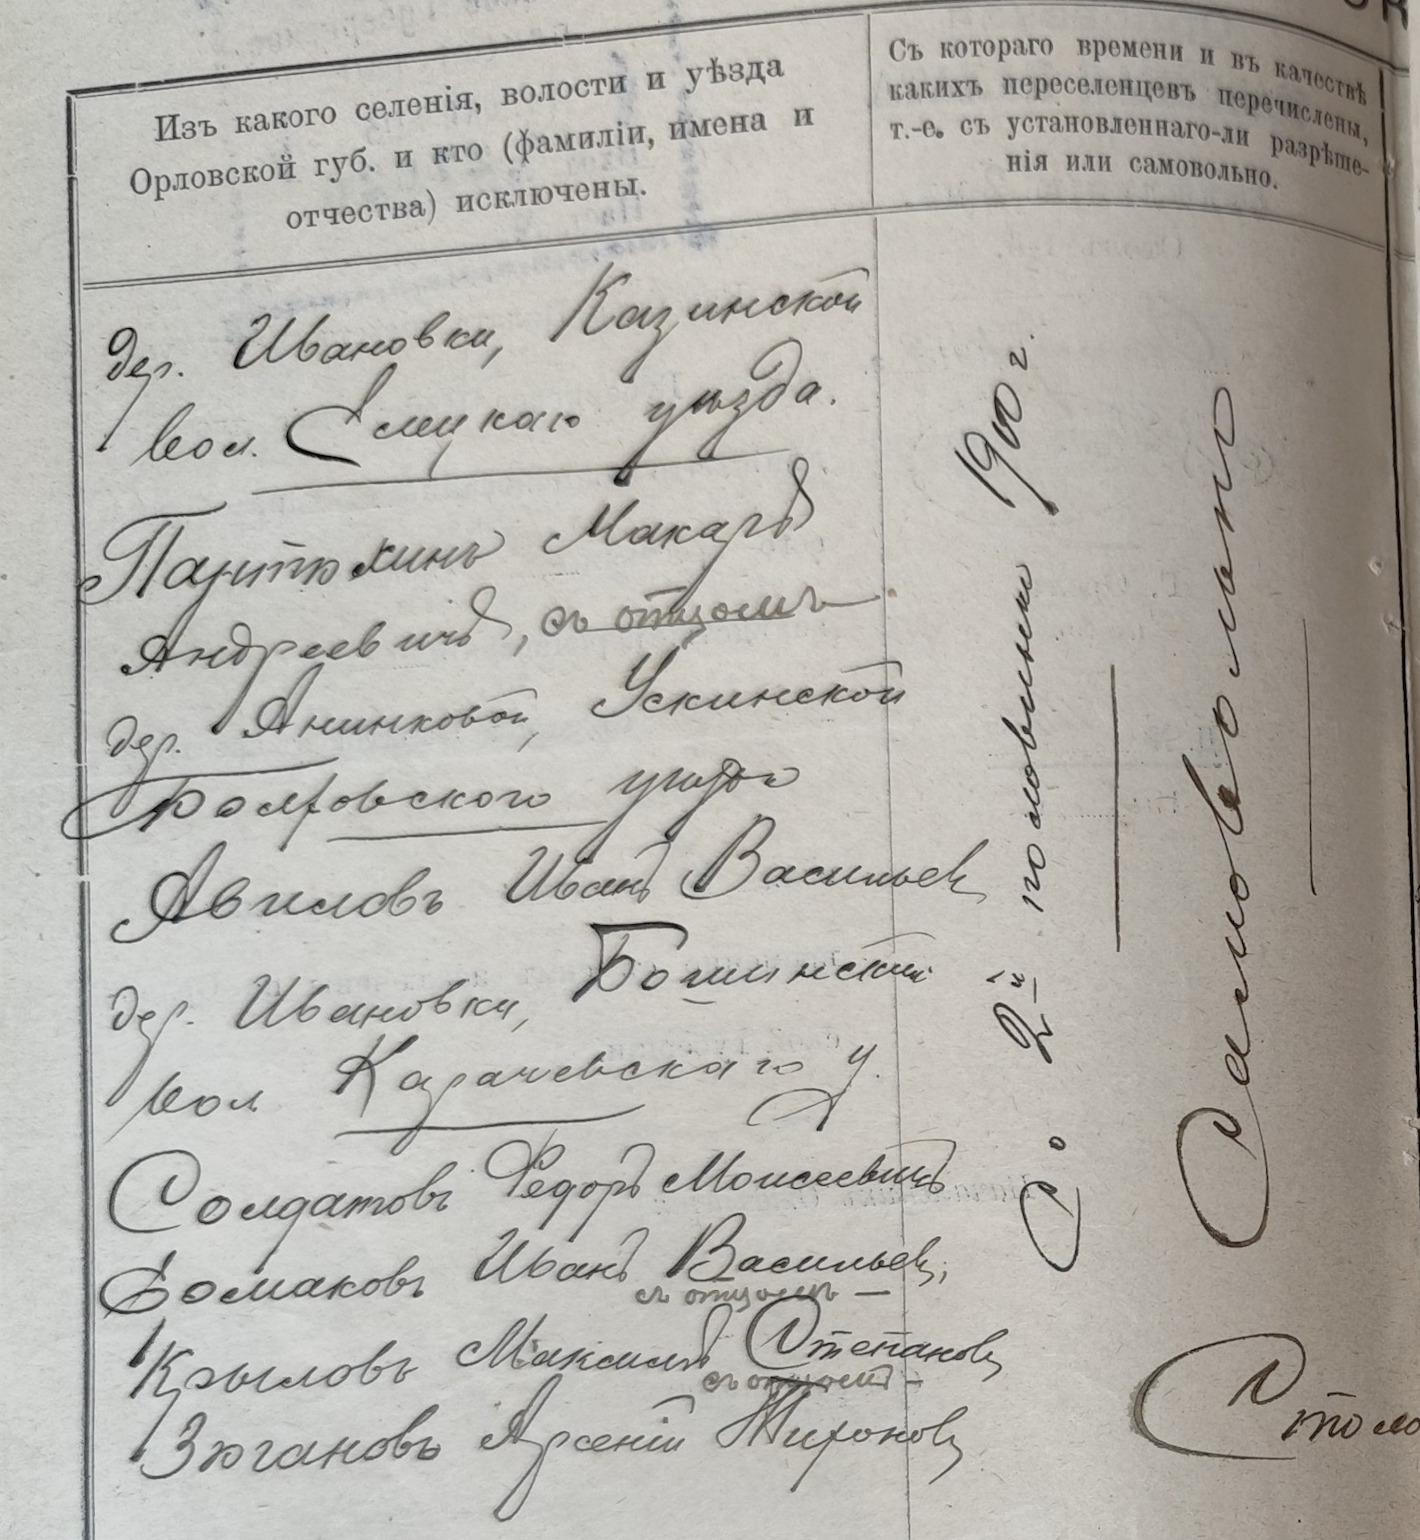 Изъ какого селенія, волости и уѣзда
Орловской губ. и кто (фамиліи, имена и
отчества) исключены.
Съ котораго времени и въ качествѣ
какихъ переселенцевъ перечислены,
т.-е. съ установленнаго-ли разрѣше-
нія или самовольно.
дер. Ивановки, Казинской
вол. Елецкаго уѣзда.
Пантюхинъ Макаръ
Андреевичъ, съ отцомъ
дер. Анинковой, Ускинской
Болховского уѣзда
Авиловъ Иванъ Васильев
дер. Ивановки,
вол Карачевскаго у.
Солдатовъ Федоръ Моисеевичъ
Ермаковъ Иванъ Васильев,
съ отцомъ —
Крыловъ Максимъ Степанов
съ отцомъ —
Зюгановъ Арсеній Тихонов
Со 2й половины 1900 г.
Самовольно